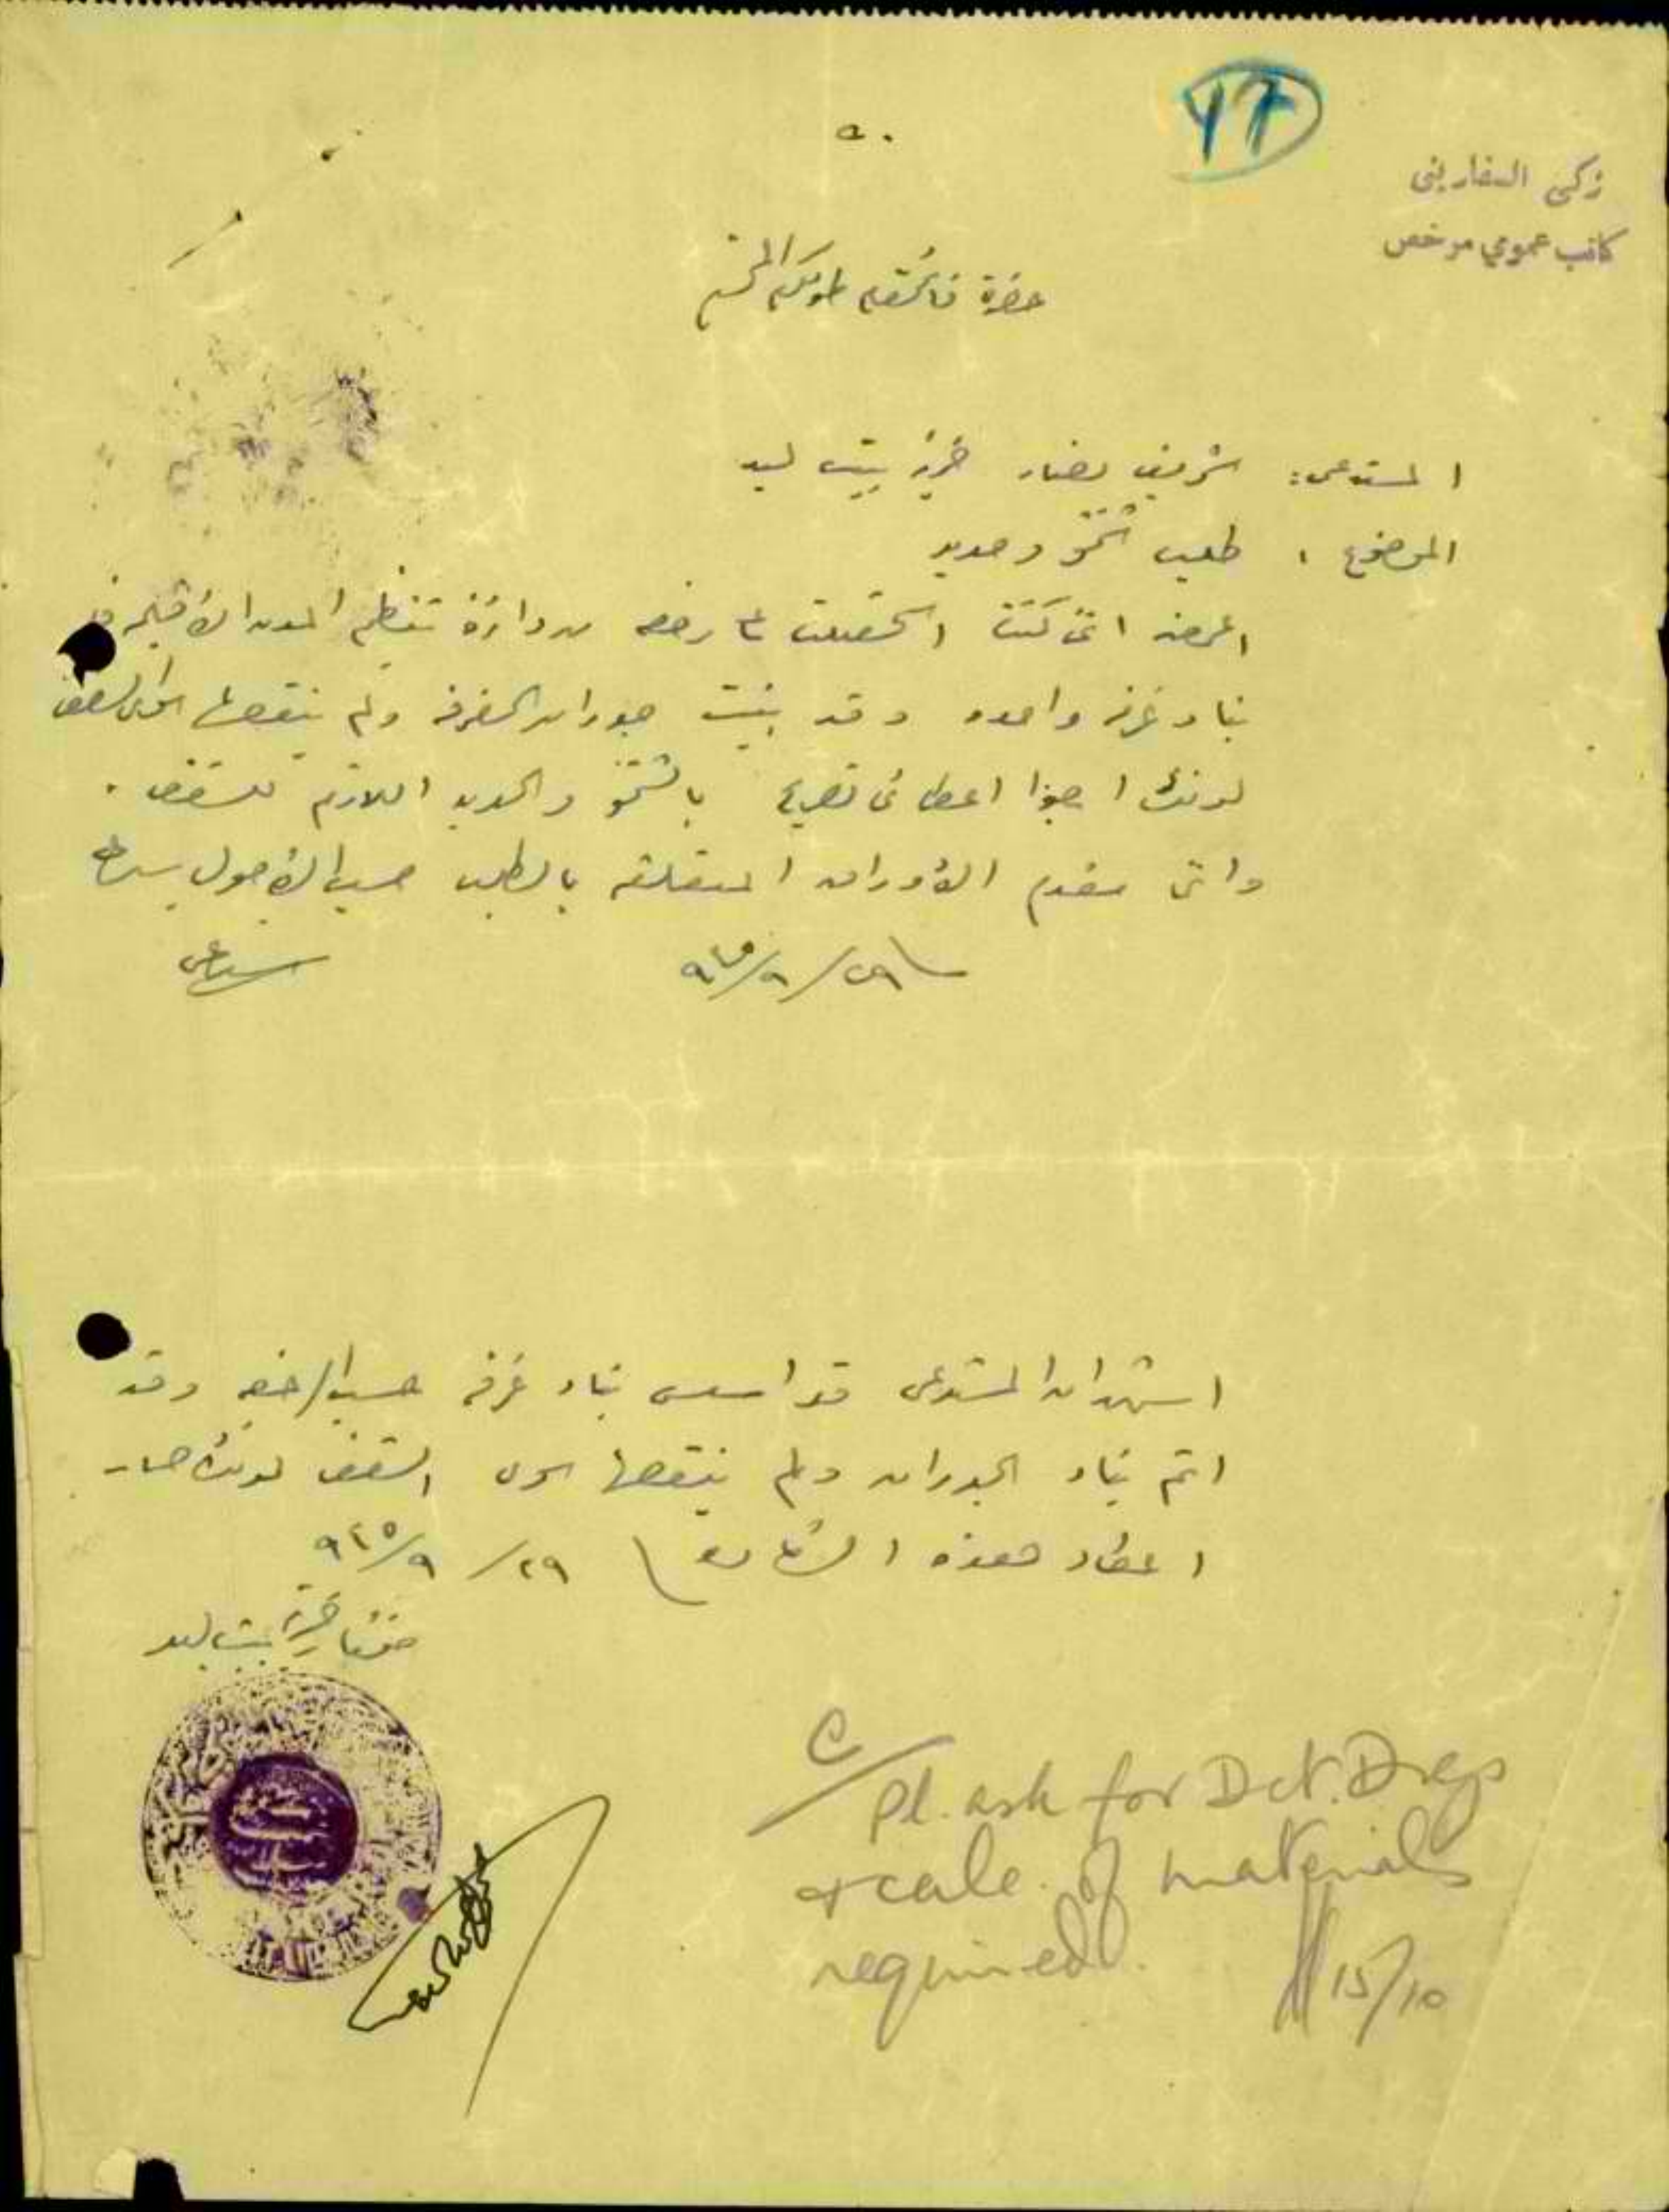 47
٥٠
زكي السفاريني
كاتب عمومي مرخص
حضرة قائمقام طولكرم المحترم
المستدعي: شريف نصار خربة بيت ليد
الموضوع : طلب شمنتو وحديد
اعرض انني كنت استحصلت على رخصه من دائرة تنظيم المدن الاقليميه
بناء غرفه واحده وقد بنيت جدران الغرفه ولم ينقصها سوى السقف
لذلك ارجو اعطائي تصريح بالشمنتو والحديد اللازم للسقف .
واني مقدم الأوراق المتعلقه بالطلب حسب الأصول سيدي
٢٩/٩/٩٤٥
مستدعي
استشهد ان المستدعي قد اسس بناء غرفه حسب الرخصه وقد
اتم بناء الجدران ولم ينقصها سوى السقف لذلك صار
اعطاء هذه الشهاده ٢٩/٩/٩٤٥
مختار خربة بيت ليد
C/
Pl. ask for Dct. Drgs
& scale of materials
required.
15/10